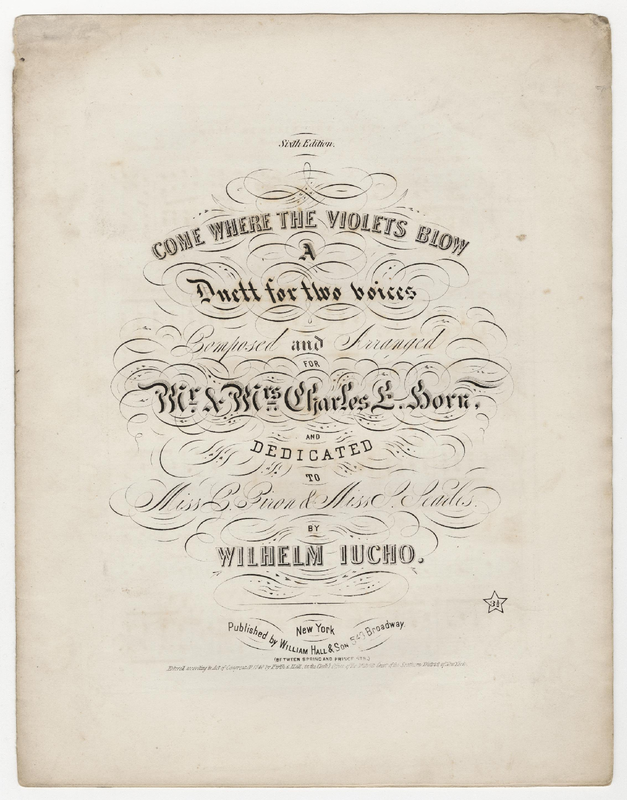 Sixth Edition.
COME WHERE THE VIOLETS BLOW
A
Duett for two voices
Composed and Arranged
FOR
Mr. & Mrs. Charles E. Horn,
AND
DEDICATED
TO
Miss & Miss
BY
WILHELM IUCHO.
New York
Published by WILLIAM HALL & SON 543 Broadway
(BETWEEN SPRING AND PRINCE STS.)
Entered according to Act of Congress by Firth & Hall, in the Clerk's Office of the District Court of the Southern District of New York.